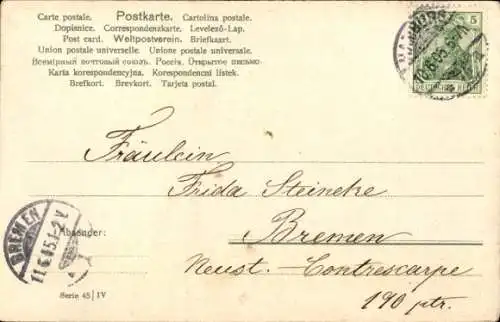 Carte postale. Postkarte. Cartolina postale.
Dopisnice. Correspondenzkarte. Levelező-Lap.
Post card. Weltpostverein. Briefkaart.
Union postale universelle. Unione postale universale.
Всемірный почтовый союзъ. Россія. Открытое письмо.
Karta korespondencyjna. Korespondenční listek.
Brefkort. Brevkort. Tarjeta postal.
5
DEUTSCHES REICH
Fräulein
Frida Steineke
Bremen
Neust.-Contrescarpe
190 ptr.
BREMEN
11.6.05.1-2V.
Absender:
Serie 45 | IV